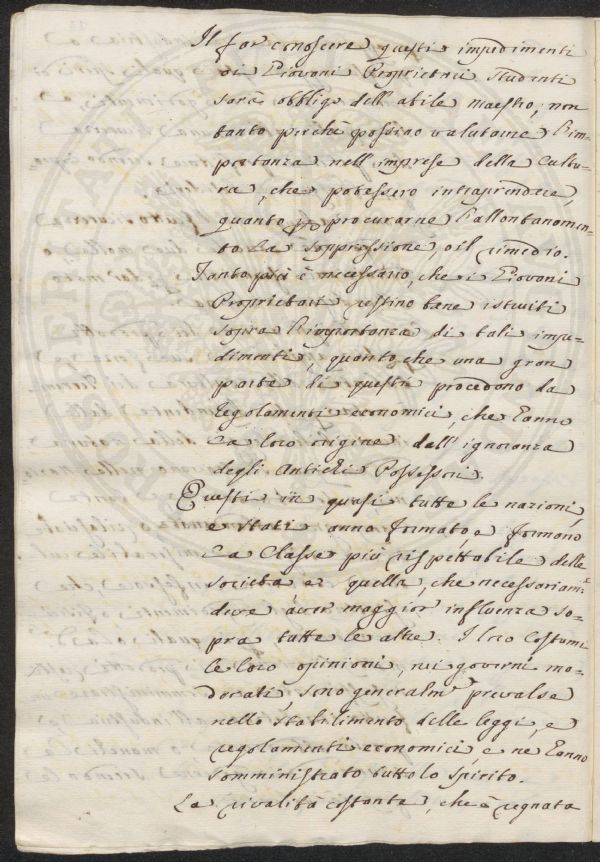 Il far conoscere questi impedimenti
ai Giovani Proprietarj studenti
sarà obbligo dell'abile maestro, non
tanto perchè possino valutarne l'im-
portanza nell'imprese della Cultu-
ra, che potessero intraprendere,
quanto per procurarne l'allontanamen-
to la soppressione, o il rimedio.
Tanto più è necessario, che i Giovani
Proprietarj restino bene istruiti
sopra l'importanza di tali impe-
dimenti, quanto che una gran
parte di questi procedono da
regolamenti economici, che hanno
la loro origine dall'ignoranza
degli Antichi Possessori.
Questi in quasi tutte le nazioni,
e stati anno formato, e formano
la Classe più rispettabile della
società e quella, che necessariam.e
deve aver maggior influenza so-
pra tutte le altre. I loro Costumi
le loro opinioni, nei governi mo-
derati, sono generalm.e prevalse
nello stabilimento delle leggi, e
regolamenti economici, e ne hanno
somministrato tutto lo spirito.
La rivalità costante, che è regnata